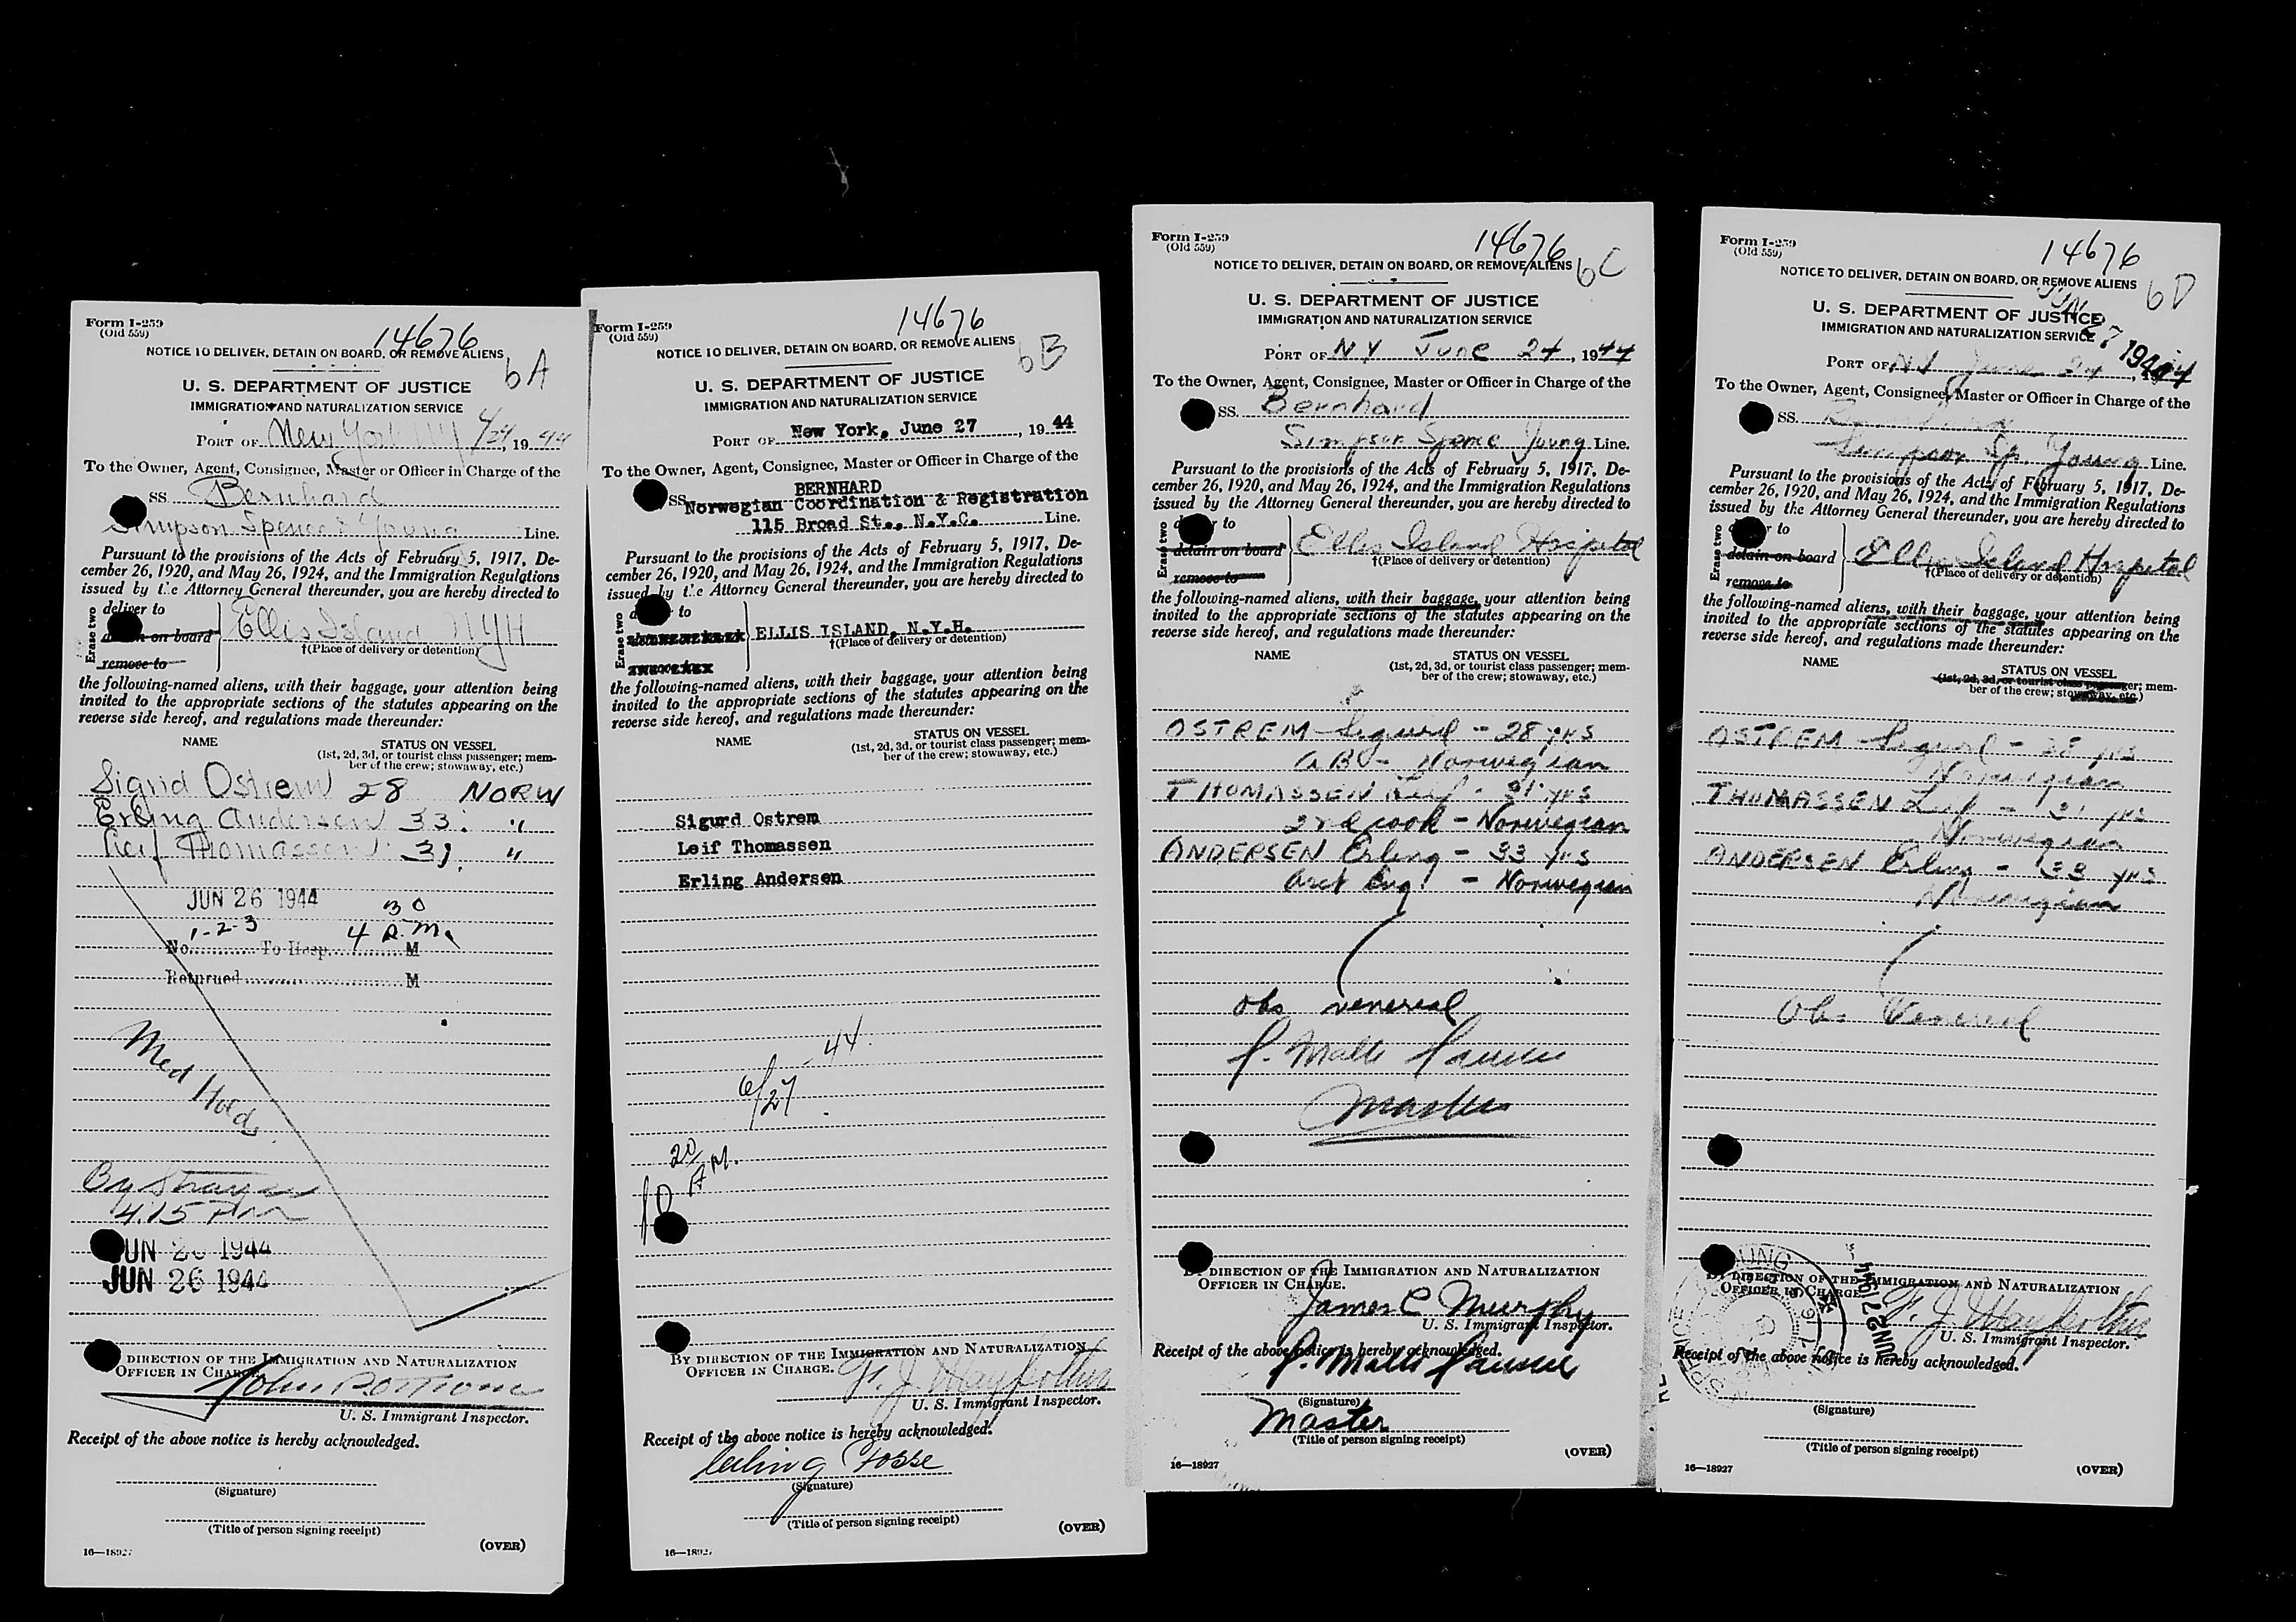 Form I-259
(Old 559)
14676
NOTICE TO DELIVER, DETAIN ON BOARD, OR REMOVE ALIENS
6A
U. S. DEPARTMENT OF JUSTICE
IMMIGRATION AND NATURALIZATION SERVICE
PORT OF New York NY 19 44
To the Owner, Agent, Consignee, Master or Officer in Charge of the
SS. Bernhard
Simpson Spence & Young Line.
Pursuant to the provisions of the Acts of February 5, 1917, De-
cember 26, 1920, and May 26, 1924, and the Immigration Regulations
issued by the Attorney General thereunder, you are hereby directed to
Erase two
deliver to
detain on board
remove to
Ellis Island NYH
†(Place of delivery or detention)
the following-named aliens, with their baggage, your attention being
invited to the appropriate sections of the statutes appearing on the
reverse side hereof, and regulations made thereunder:
NAME STATUS ON VESSEL
(1st, 2d, 3d, or tourist class passenger; mem-
ber of the crew; stowaway, etc.)
Sigrid Ostrem 28 NORW
Erling Andersen 33. "
Leif Thomassen 31. "
JUN 26 1944
1-2-3 4 30 P.M.
No. To Hosp. M
Returned M
Med Hold
By
4.15 PM
JUN 26 1944
JUN 26 1944
DIRECTION OF THE IMMIGRATION AND NATURALIZATION
OFFICER IN CHARGE.
U. S. Immigrant Inspector.
Receipt of the above notice is hereby acknowledged.
(Signature)
(Title of person signing receipt)
16—18927
(OVER)
Form I-259
(Old 559)
14676
NOTICE TO DELIVER, DETAIN ON BOARD, OR REMOVE ALIENS
6B
U. S. DEPARTMENT OF JUSTICE
IMMIGRATION AND NATURALIZATION SERVICE
PORT OF New York, June 27, 19 44
To the Owner, Agent, Consignee, Master or Officer in Charge of the
BERNHARD
SS. Norwegian Coordination & Registration
115 Broad St., N.Y.C. Line.
Pursuant to the provisions of the Acts of February 5, 1917, De-
cember 26, 1920, and May 26, 1924, and the Immigration Regulations
issued by the Attorney General thereunder, you are hereby directed to
Erase two
to
ELLIS ISLAND, N.Y.H.
†(Place of delivery or detention)
the following-named aliens, with their baggage, your attention being
invited to the appropriate sections of the statutes appearing on the
reverse side hereof, and regulations made thereunder:
NAME STATUS ON VESSEL
(1st, 2d, 3d, or tourist class passenger; mem-
ber of the crew; stowaway, etc.)
Sigurd Ostrem
Leif Thomassen
Erling Andersen
6/27 - 44.
10 20 A.M.
BY DIRECTION OF THE IMMIGRATION AND NATURALIZATION
OFFICER IN CHARGE.
U. S. Immigrant Inspector.
Receipt of the above notice is hereby acknowledged.
Fosse
(Signature)
(Title of person signing receipt)
(OVER)
16—18927
Form I-259
(Old 559)
14676
NOTICE TO DELIVER, DETAIN ON BOARD, OR REMOVE ALIENS
6C
U. S. DEPARTMENT OF JUSTICE
IMMIGRATION AND NATURALIZATION SERVICE
PORT OF NY June 24, 1944
To the Owner, Agent, Consignee, Master or Officer in Charge of the
SS. Bernhard
Simpson Spence Young Line.
Pursuant to the provisions of the Acts of February 5, 1917, De-
cember 26, 1920, and May 26, 1924, and the Immigration Regulations
issued by the Attorney General thereunder, you are hereby directed to
Erase two
to
detain on board
remove to
Ellis Island Hospital
†(Place of delivery or detention)
the following-named aliens, with their baggage, your attention being
invited to the appropriate sections of the statutes appearing on the
reverse side hereof, and regulations made thereunder:
NAME STATUS ON VESSEL
(1st, 2d, 3d, or tourist class passenger; mem-
ber of the crew; stowaway, etc.)
OSTREM Sigurd - 28 yrs
AB - Norwegian
THOMASSEN Leif - 31 yrs
2nd cook - Norwegian
ANDERSEN Erling - 33 yrs
Norwegian
obs venereal
Master
BY DIRECTION OF THE IMMIGRATION AND NATURALIZATION
OFFICER IN CHARGE.
James C Murphy
U. S. Immigrant Inspector.
Receipt of the above notice is hereby acknowledged.
(Signature)
Master
(Title of person signing receipt)
(OVER)
16—18927
Form I-259
(Old 559)
14676
NOTICE TO DELIVER, DETAIN ON BOARD, OR REMOVE ALIENS
6D
U. S. DEPARTMENT OF JUSTICE
JUN 27 1944
IMMIGRATION AND NATURALIZATION SERVICE
PORT OF NY June 24, 44
To the Owner, Agent, Consignee, Master or Officer in Charge of the
SS. Bernhard
Simpson Sp. Young Line.
Pursuant to the provisions of the Acts of February 5, 1917, De-
cember 26, 1920, and May 26, 1924, and the Immigration Regulations
issued by the Attorney General thereunder, you are hereby directed to
Erase two
to
detain on board
remove to
Ellis Island Hospital
†(Place of delivery or detention)
the following-named aliens, with their baggage, your attention being
invited to the appropriate sections of the statutes appearing on the
reverse side hereof, and regulations made thereunder:
NAME STATUS ON VESSEL
(1st, 2d, 3d, or tourist class passenger; mem-
ber of the crew; stowaway, etc.)
OSTREM Sigurd - 28 yrs
Norwegian
THOMASSEN Leif - 31 yrs
Norwegian
ANDERSEN Erling - 33 yrs
Norwegian
Obs Venereal
BY DIRECTION OF THE IMMIGRATION AND NATURALIZATION
OFFICER IN CHARGE.
JUN 27 1944
U. S. Immigrant Inspector.
Receipt of the above notice is hereby acknowledged.
(Signature)
(Title of person signing receipt)
16—18927
(OVER)